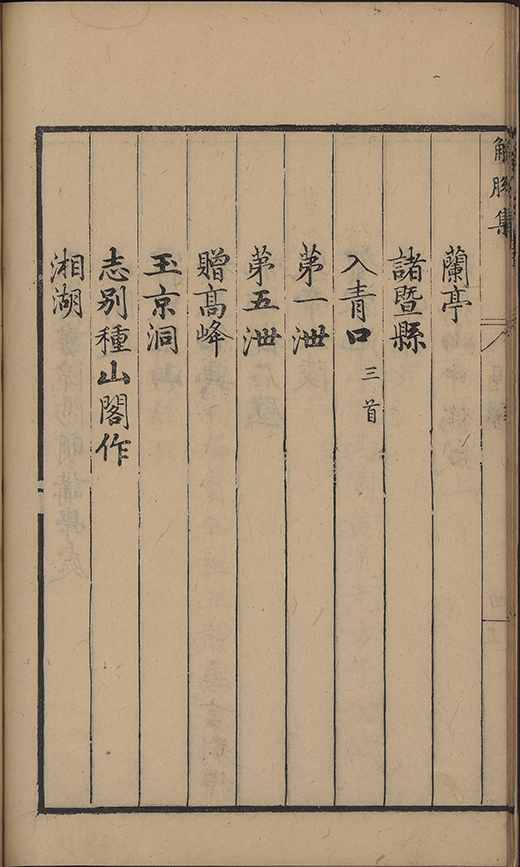 解脫集
蘭亭
諸暨縣
入青口 三首
苐一泄
苐五泄
贈高峰
玉京洞
志別種山閣作
湘湖